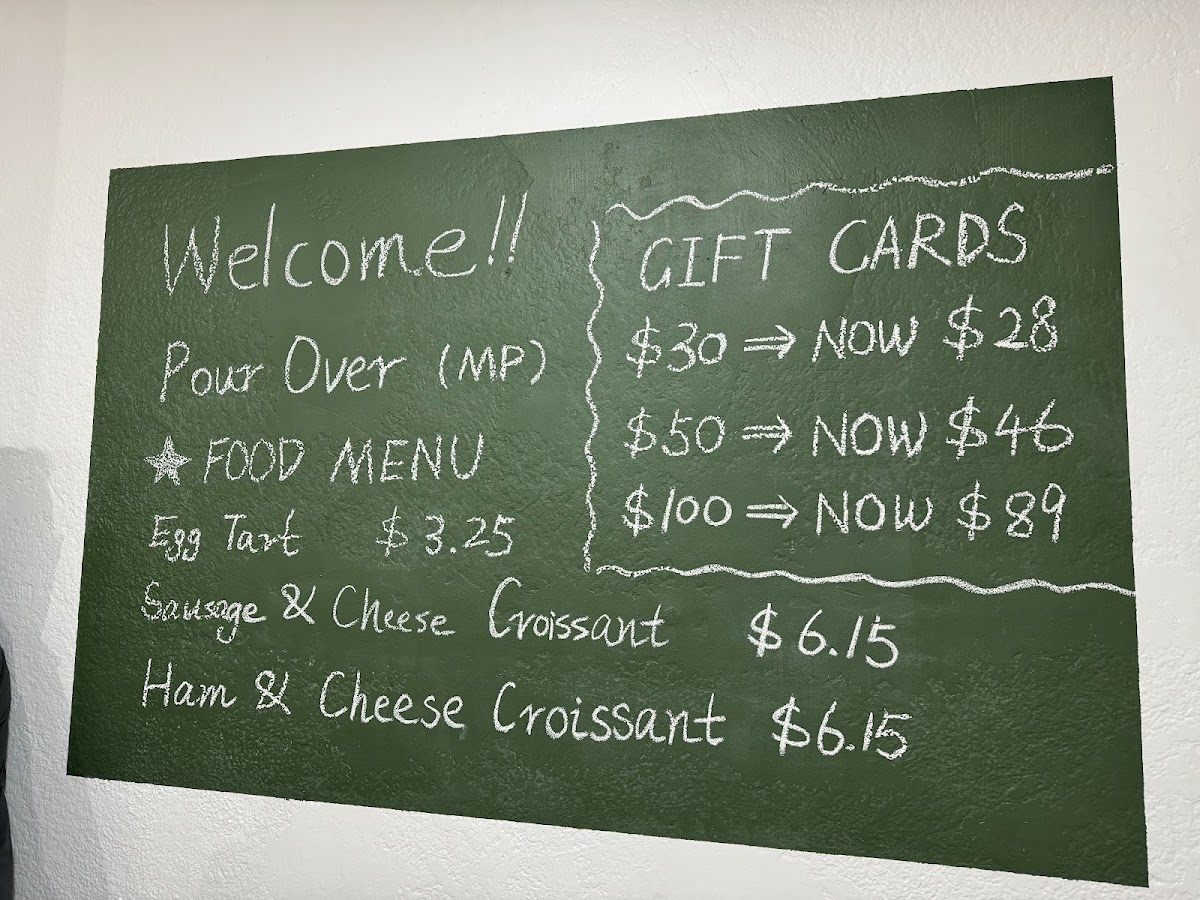 Welcome!!
Pour Over (MP)
★ FOOD MENU
Egg Tart $3.25
Sausage & Cheese Croissant $6.15
Ham & Cheese Croissant $6.15
GIFT CARDS
$30 ⇒ NOW $28
$50 ⇒ NOW $46
$100 ⇒ NOW $89